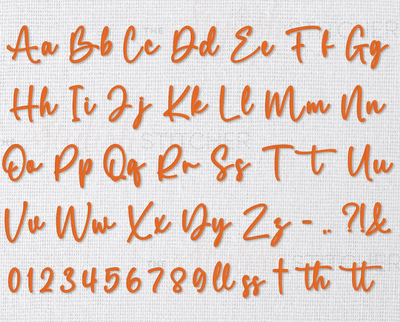 THE
Aa Bb Cc Dd Ee Ff Gg
Hh Ii Jj Kk Ll Mm Nn
THE STITCHER
Oo Pp Qq Rr Ss Tt Uu
Vv Ww Xx Yy Zz - .. ?!&
0 1 2 3 4 5 6 7 8 9 ll ss t th tt